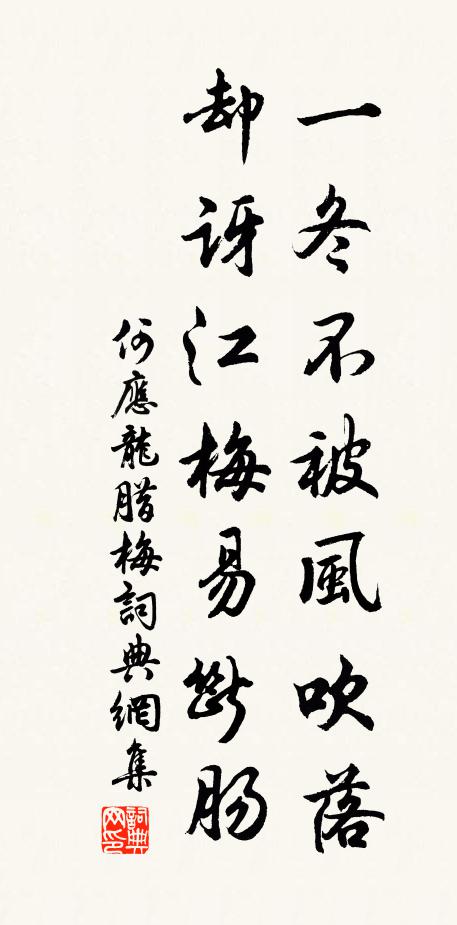 一冬不被風吹落
却訝江梅易斷腸
何應龍腊梅詞典網集
詞典网印